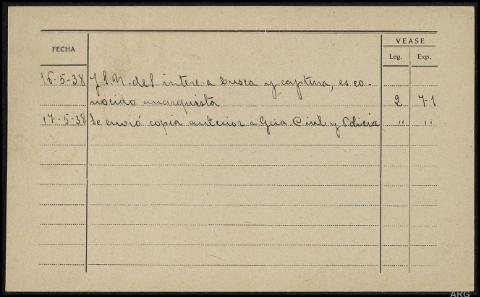 VEASE
FECHA Leg. Exp.
16-5-38 del interesa busca y captura, es co-
nocido anarquista 2 71
17-5-38 Se envió copia anterior a Gua. Civil y Policia " "
ARG